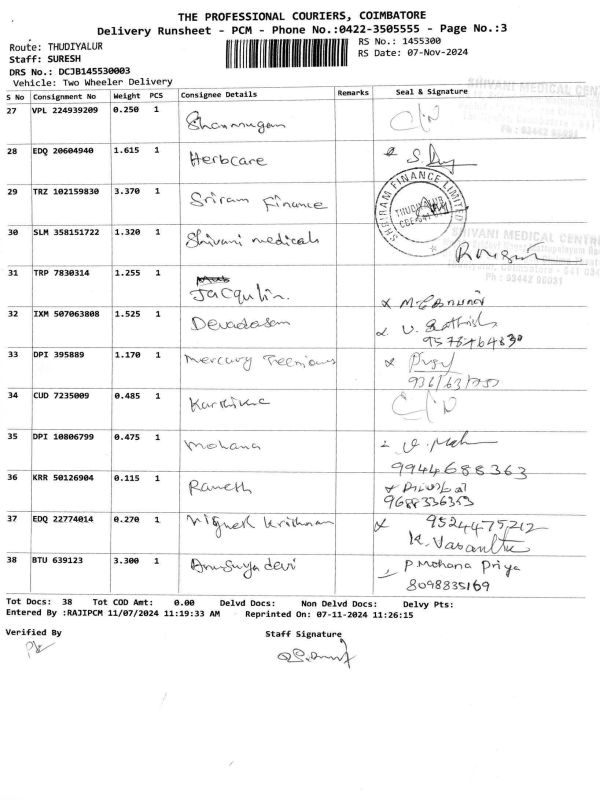 THE PROFESSIONAL COURIERS, COIMBATORE
Delivery Runsheet - PCM - Phone No.:0422-3505555 - Page No.:3
Route: THUDIYALUR
RS No.: 1455300
Staff: SURESH
RS Date: 07-Nov-2024
DRS No.: DCJB145530003
Vehicle: Two Wheeler Delivery
SHIVANI MEDICAL CEN
S No Consignment No Weight PCS Consignee Details Remarks Seal & Signature
Ph : 03442 96031
27 VPL 224939209 0.250 1 Shanmugam
28 EDQ 20604940 1.615 1 Herbcare
29 TRZ 102159830 3.370 1 Sriram Finance
SHRIRAM FINANCE LIMITED
THUDIYALUR
30 SLM 358151722 1.320 1 Shivani medicals
SHIVANI MEDICAL CENTRE
Ph : 03442 96031
31 TRP 7830314 1.255 1 Jacqulin.
32 IXM 507063808 1.525 1 Devadasan
33 DPI 395889 1.170 1 Mercury
34 CUD 7235009 0.485 1 Karthika
35 DPI 10806799 0.475 1 Mohana
9944688363
36 KRR 50126904 0.115 1
9688336353
37 EDQ 22774014 0.270 1 Vignesh Krishnan 9524475212
K. Vasantha
38 BTU 639123 3.300 1 Anusuya devi P. Mohana Priya
8098835169
Tot Docs: 38 Tot COD Amt: 0.00 Delvd Docs: Non Delvd Docs: Delvy Pts:
Entered By :RAJIPCM 11/07/2024 11:19:33 AM Reprinted On: 07-11-2024 11:26:15
Verified By Staff Signature